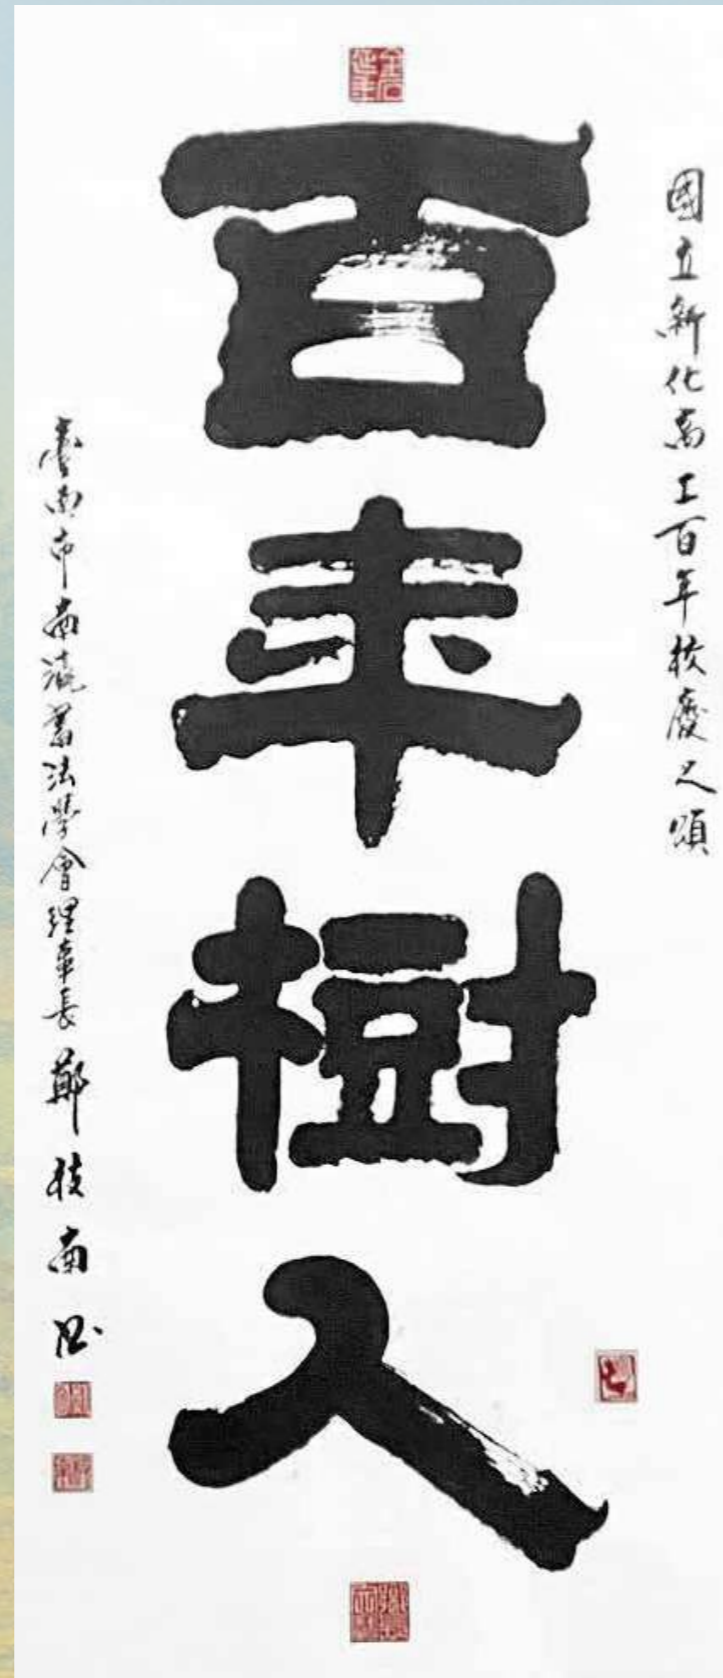 國立新化高工百年校慶之頌
百年樹人
臺南市南瀛書法學會理事長 鄭枝南 恭